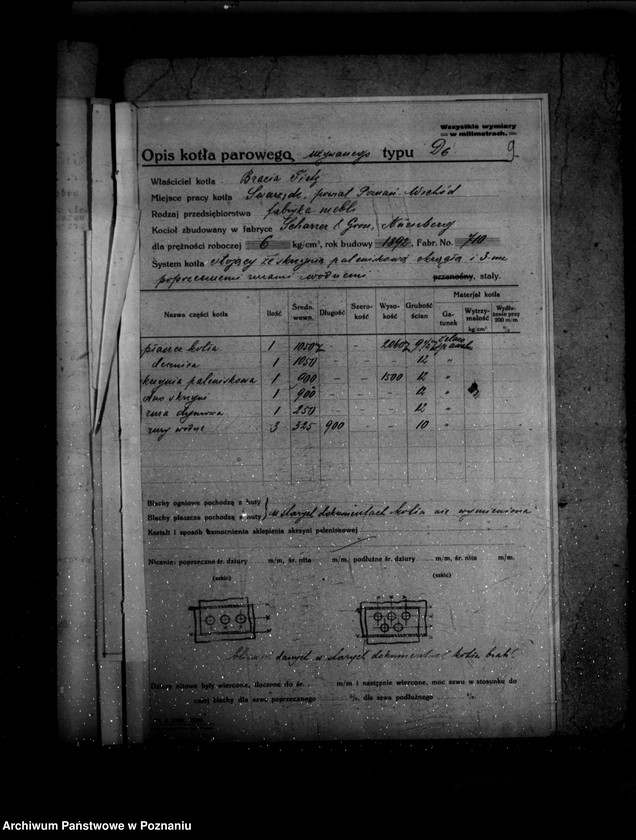 Wszystkie wymiary
w milimetrach.
Opis kotła parowego używanego typu D6 9
Właściciel kotła Bracia Tietz
Miejsce pracy kotła Swarzędz, powiat Poznań-Wschód
Rodzaj przedsiębiorstwa fabryka mebli
Kocioł zbudowany w fabryce Scharrer & Gross, Nürnberg
dla prężności roboczej 6 kg/cm², rok budowy 1892, Fabr. No. 710
System kotła stojący ze skrzynią paleniskową okrągłą i 3-ma
poprzecznemi rurami wodnemi przenośny, stały.
Nazwa części kotła Ilość Średn. wewn. Długość Szerokość Wysokość Grubość ścian Materjał kotła
Gatunek Wytrzymałość kg/cm² Wydłużenie przy 200 m/m %
płaszcz kotła 1 1050 - - 2260 9½ żelazo spawaln
dennica 1 1050 - - - 12 "
skrzynia paleniskowa 1 900 - - 1500 12 "
dno skrzyni 1 900 - - - 12 "
rura dymowa 1 250 - - 12 "
rury wodne 3 325 900 - - 10 "
Blachy ogniowe pochodzą z huty
Blachy płaszcza pochodzą z huty w starych dokumentach kotła nie wymieniona
Kształt i sposób wzmocnienia sklepienia skrzyni paleniskowej
Nicenie: poprzeczne śr. dziury m/m, śr. nita m/m, podłużne śr. dziury m/m, śr. nita m/m.
(szkic) (szkic)
danych w starych dokumentach kotła brak!
Dziury nitowe były wiercone, tłoczone do śr. m/m i następnie wiercone, moc szwu w stosunku do
całej blachy dla szwu, poprzecznego %, dla szwu podłużnego %.
Archiwum Państwowe w Poznaniu